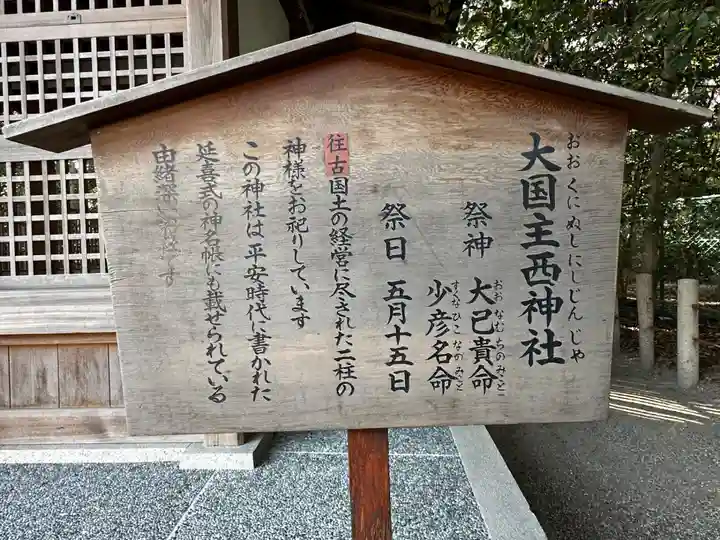 おおくにぬしにしじんじゃ
大国主西神社
祭神 大己貴命
おおなむちのみこと
少彦名命
すくなひこなのみこと
祭日 五月十五日
往古国土の経営に尽された二柱の
神様をお祀りしています
この神社は平安時代に書かれた
延喜式の神名帳にも載せられている
由緒深い
です